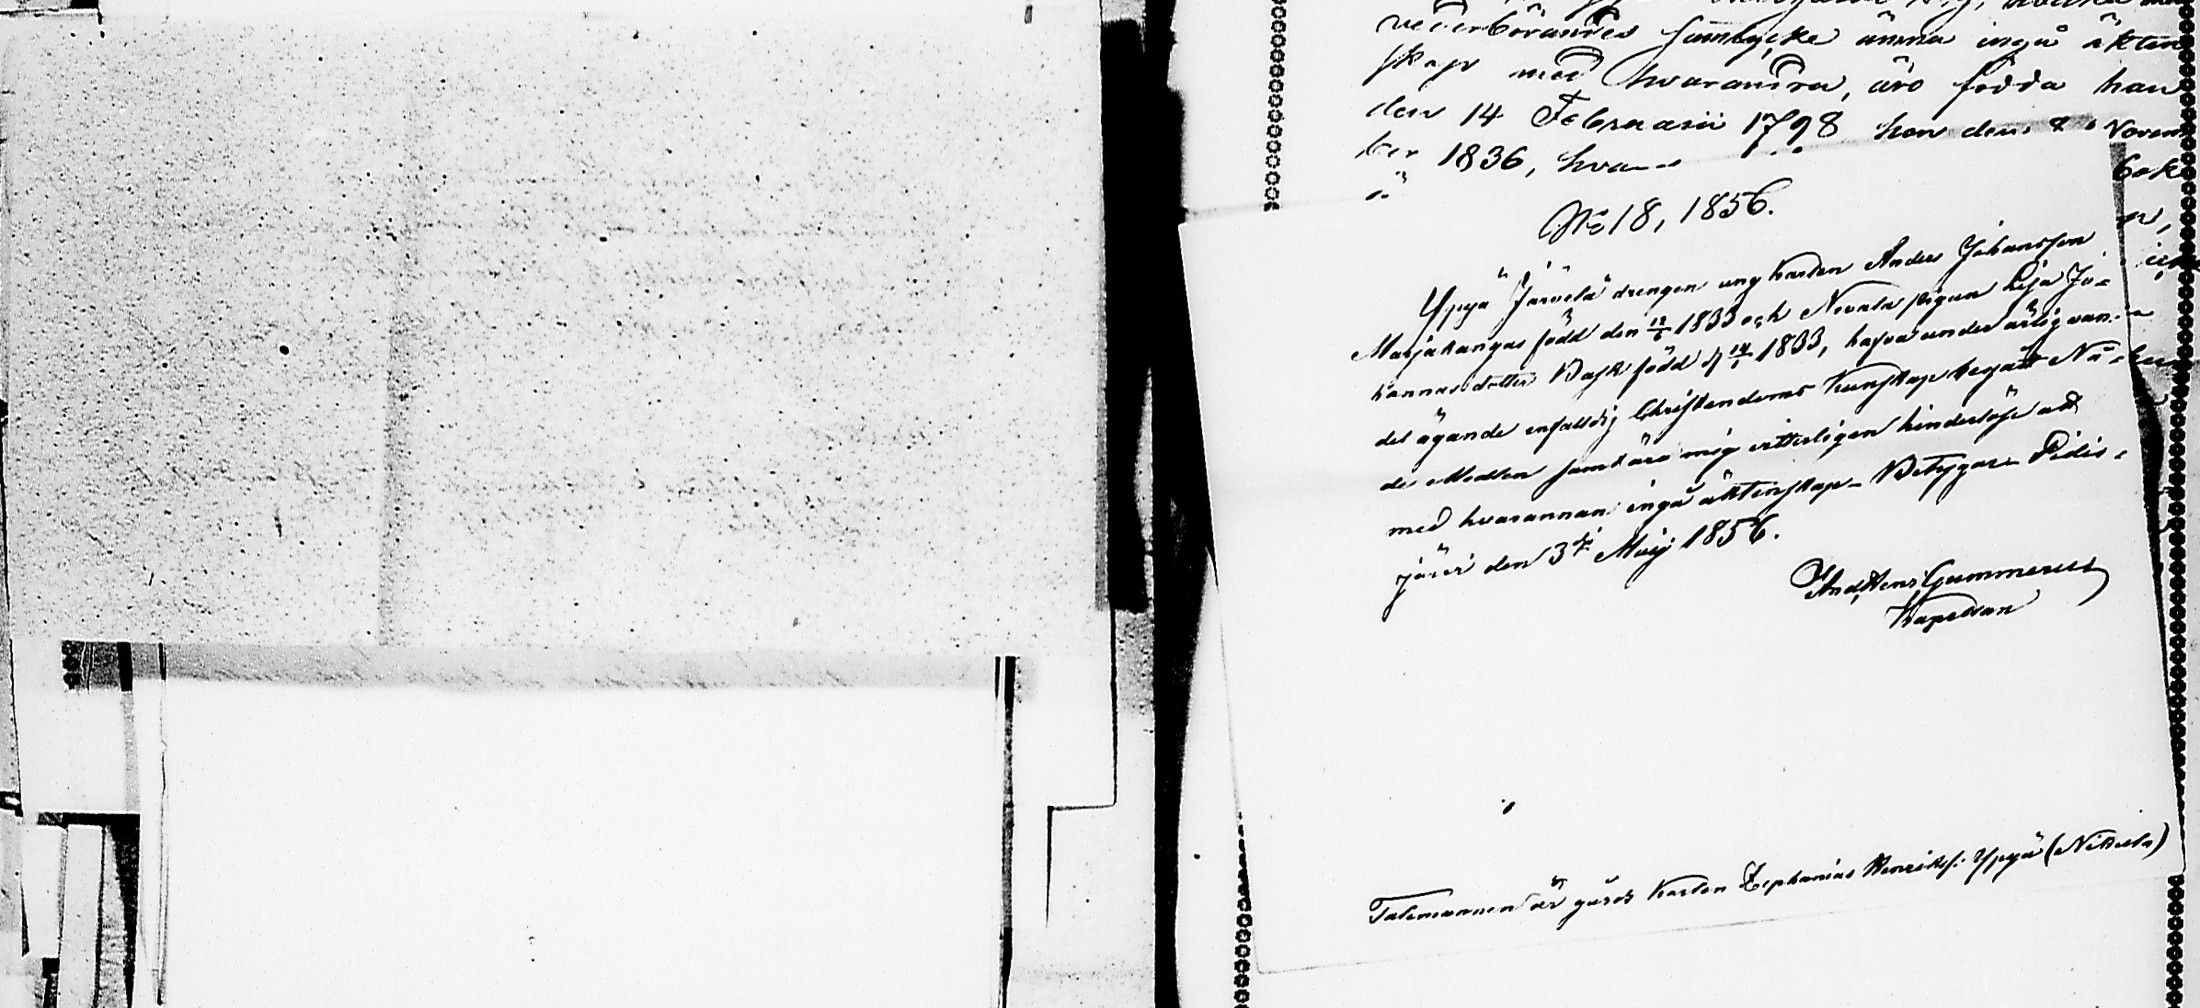 vederbörandes samtycke ämna ingå äkten
skap med hvarandra, äro födda han
den 14 Februarii 1798 hon den 8 Novem
ber 1836,
bok
No 18, 1856.
Ypyä Järvelä drengen ung karlen Anders Johansson
Marjakangas född den 12/6 1833 och Nivala pigan Lisa Jo-
hannasdotter Bask född d 14/1 1833, hafva under ärlig van-
del ägande enfaldig Christendoms kunskap begått Nå-
de Medlen samt äro mig vitterligen hinderlöse att
med hvarannan ingå äktenskap. Betygar. Pidis-
järvi den 3de Maij 1856.
And. Hens. Gummerus
Kapellan
Talemannen är gårds karlen Zephanias Henrikss: Ypyä (Nikula)